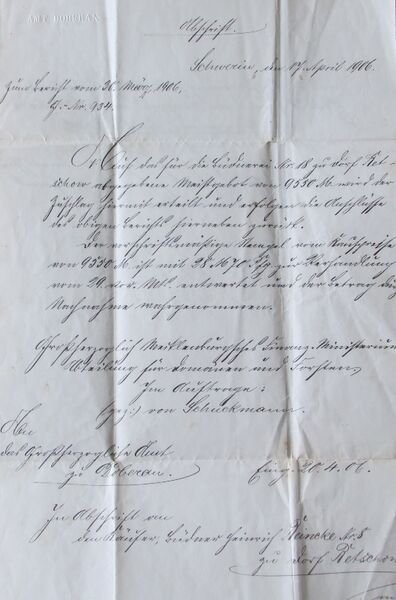 AMT DOBERAN
Abschrift.
Schwerin, den 17. April 1906.
Zum Bericht vom 30. März 1906,
J.-Nr. 934.
Auf das für die Büdnerei Nr. 18 zu Dorf Ret-
schow abgegebene Meistgebot von 9550 M. wird der
Zuschlag hiermit erteilt und erfolgen die Anschlüsse
des obigen Berichts hierneben zurück.
Der vorschriftsmäßige Stempel vom Kaufpreise
von 9550 M. ist mit 28 M 70 Pfg zur Verhandlung
vom 29. vor. Mts. entwertet und der Betrag durch
Nachnahme wahrgenommen.
Großherzoglich Mecklenburgsches Finanz-Ministerium
Abteilung für Domänen und Forsten,
Im Auftrage:
(gez.) von Schuckmann.
An
das Großherzogliche Amt
zu Doberan.
Eing. 20.4.06.
In Abschrift an
den Käufer, Büdner Heinrich Reincke Nr. 8
zu Dorf Retschow